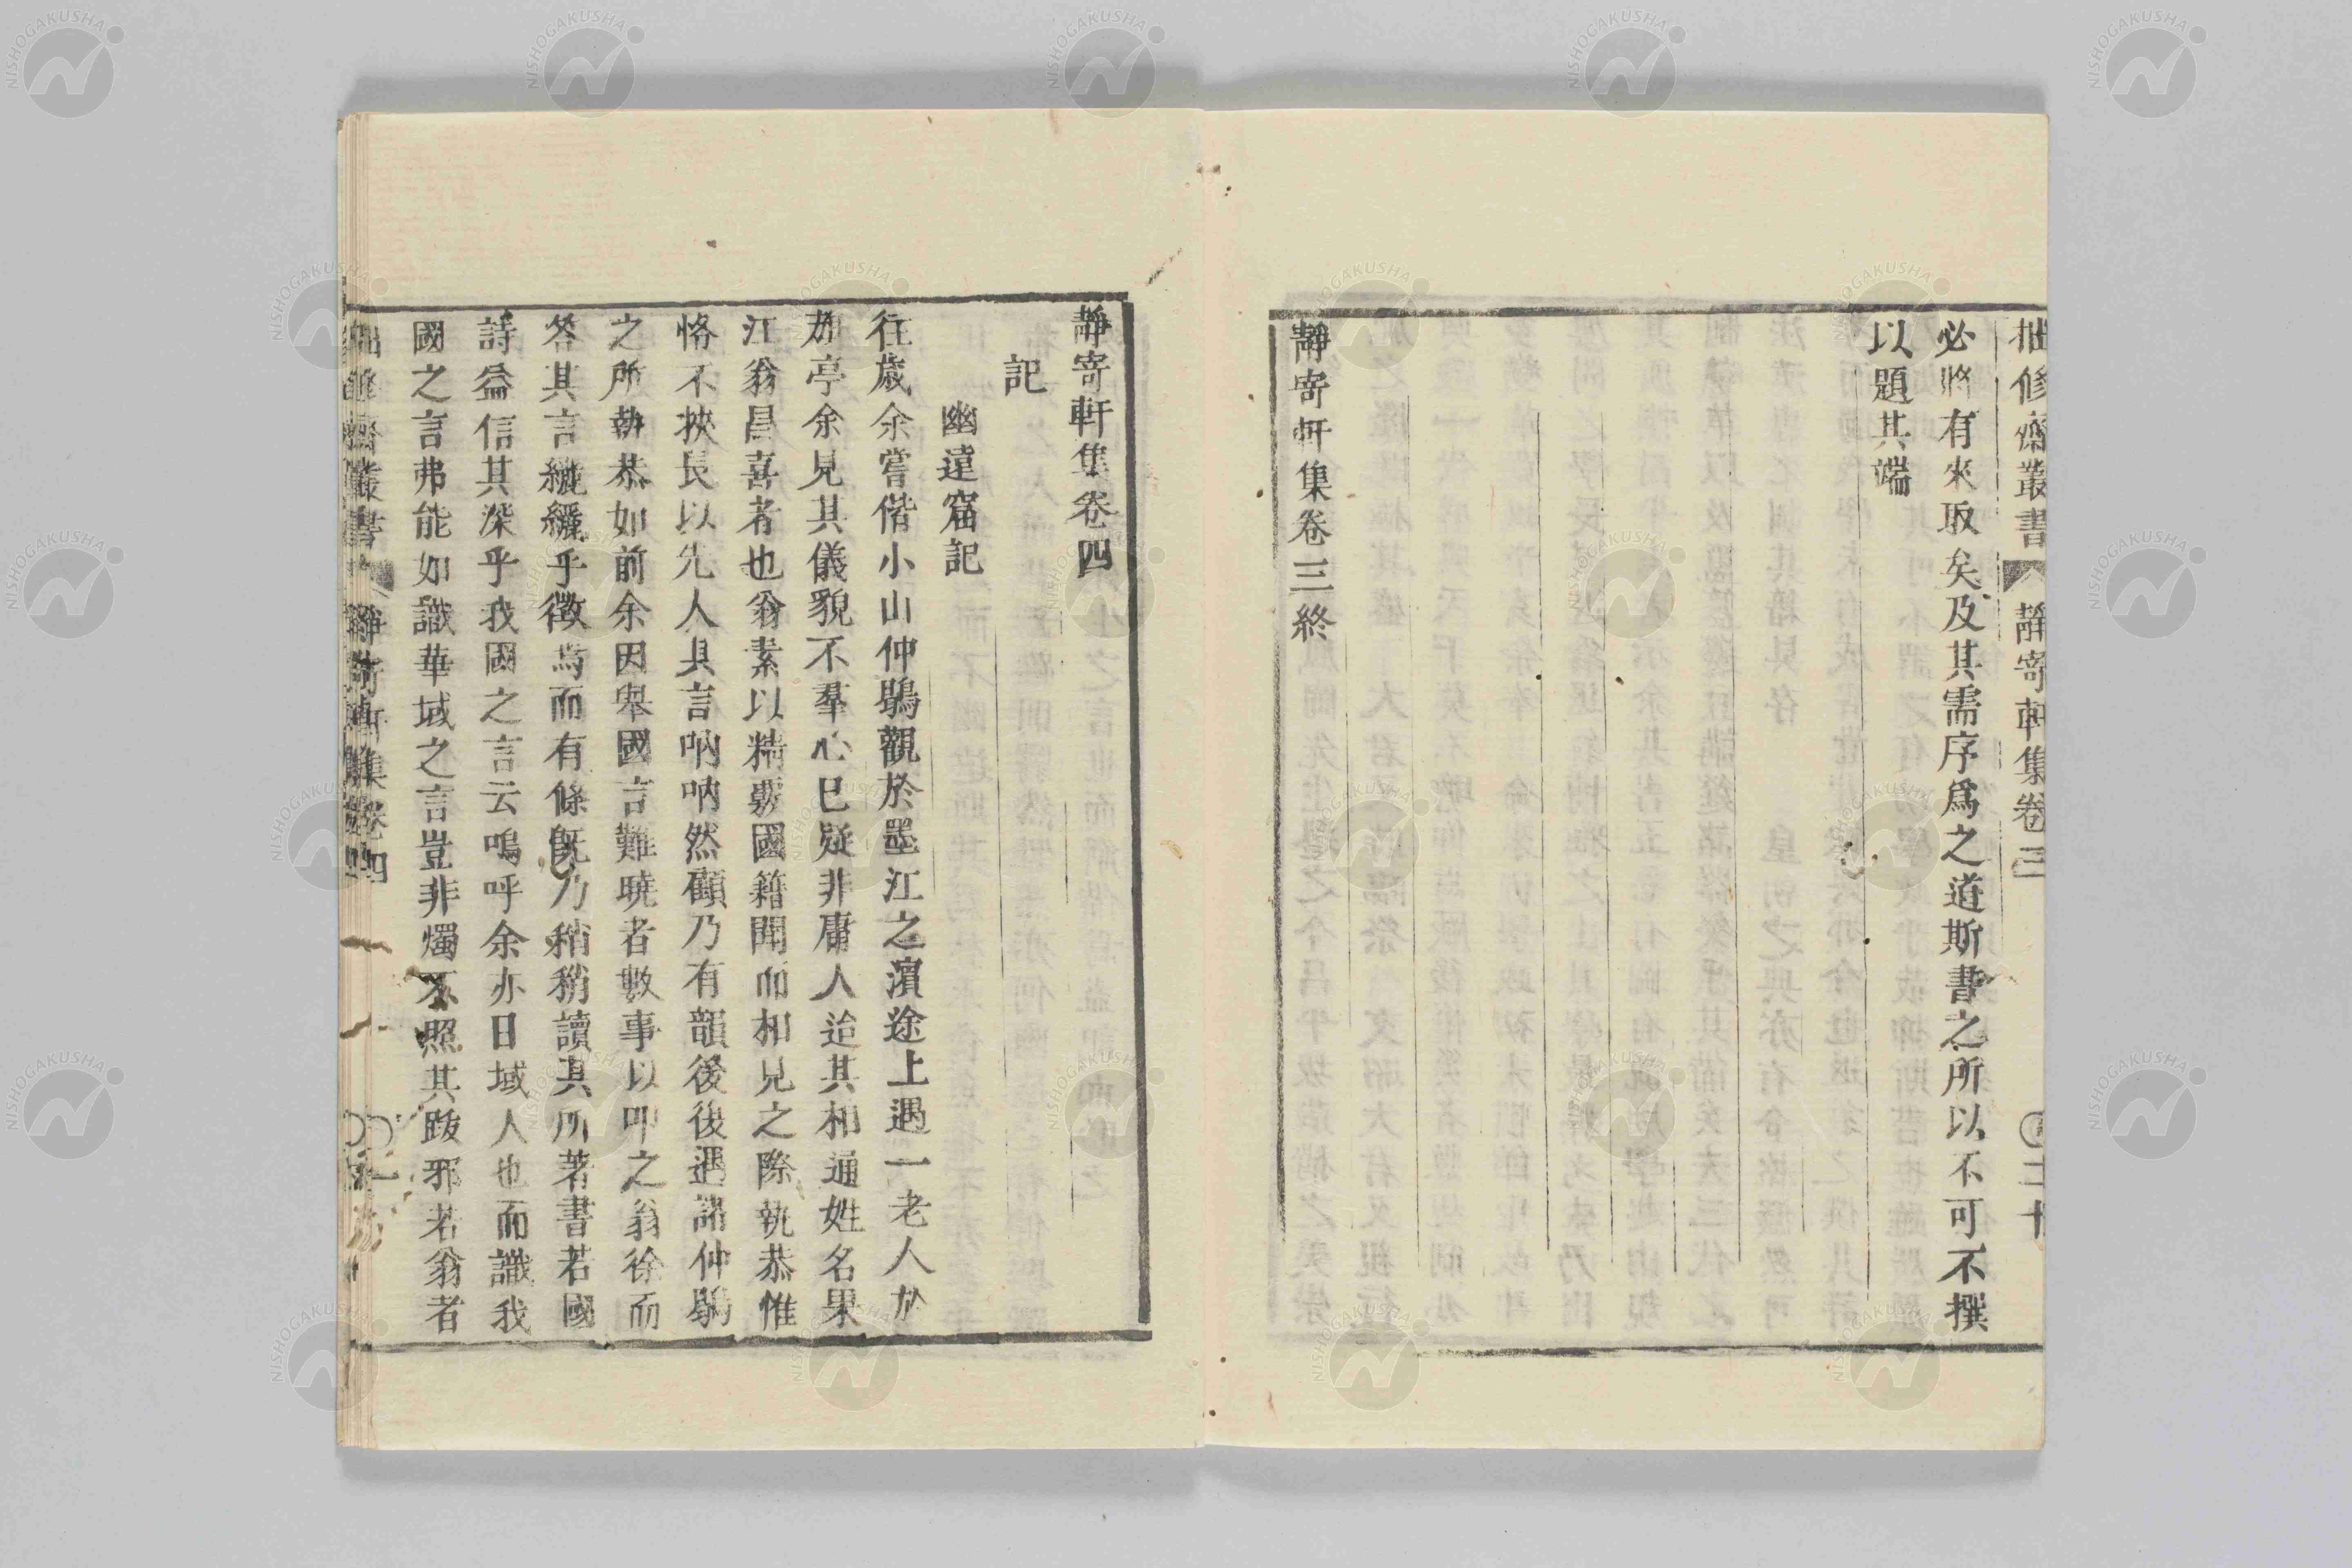 拙修齋叢書 靜寄軒集卷三 二十
必將有來取矣及其需序爲之道斯書之所以不可不撰
以題其端
靜寄軒集卷三終
靜寄軒集卷四
記
幽遠窟記
往歲余嘗偕小山仲鵾觀於墨江之濱途上遇一老人於
茄亭余見其儀貌不羣心已疑非庸人迨其相通姓名果
江翁昌喜者也翁素以精覈國籍聞而相見之際執恭惟
恪不挾長以先人其言吶吶然顧乃有韻後後遇諸仲鵾
之所執恭如前余因舉國言難曉者數事以叩之翁徐而
答其言纚纚乎徵焉而有條旣乃稍稍讀其所著書若國
詩益信其深乎我國之言云嗚呼余亦日域人也而識我
國之言弗能如識華域之言豈非燭不照其跋邪若翁者
拙修齋叢書 靜寄軒集卷四 一
NISHOGAKUSHA